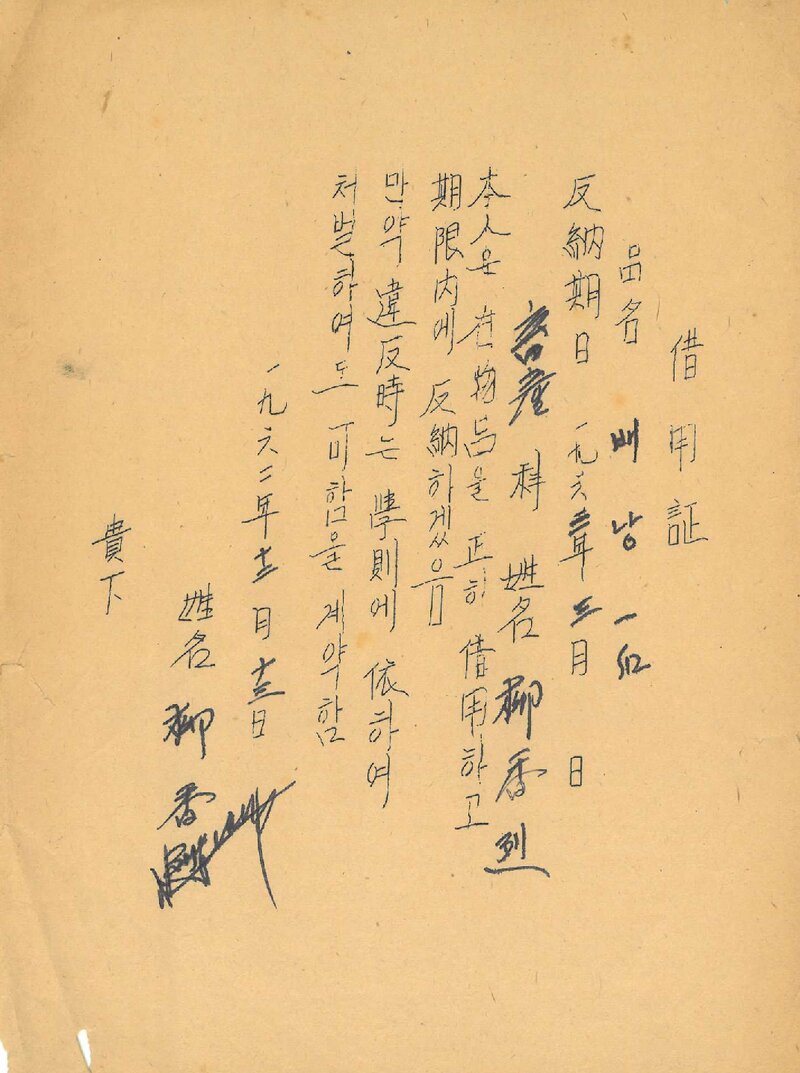 借用証
品名 배낭 一
反納期日 一九六三年 三月 日
畜産科 姓名 柳香烈
本人은 右物品을 正히 借用하고
期限內에 反納하겠음
만약 違反時는 學則에 依하여
처벌하여도 可함을 계약함
一九六二年 十二月 十三日
姓名 柳香
貴下